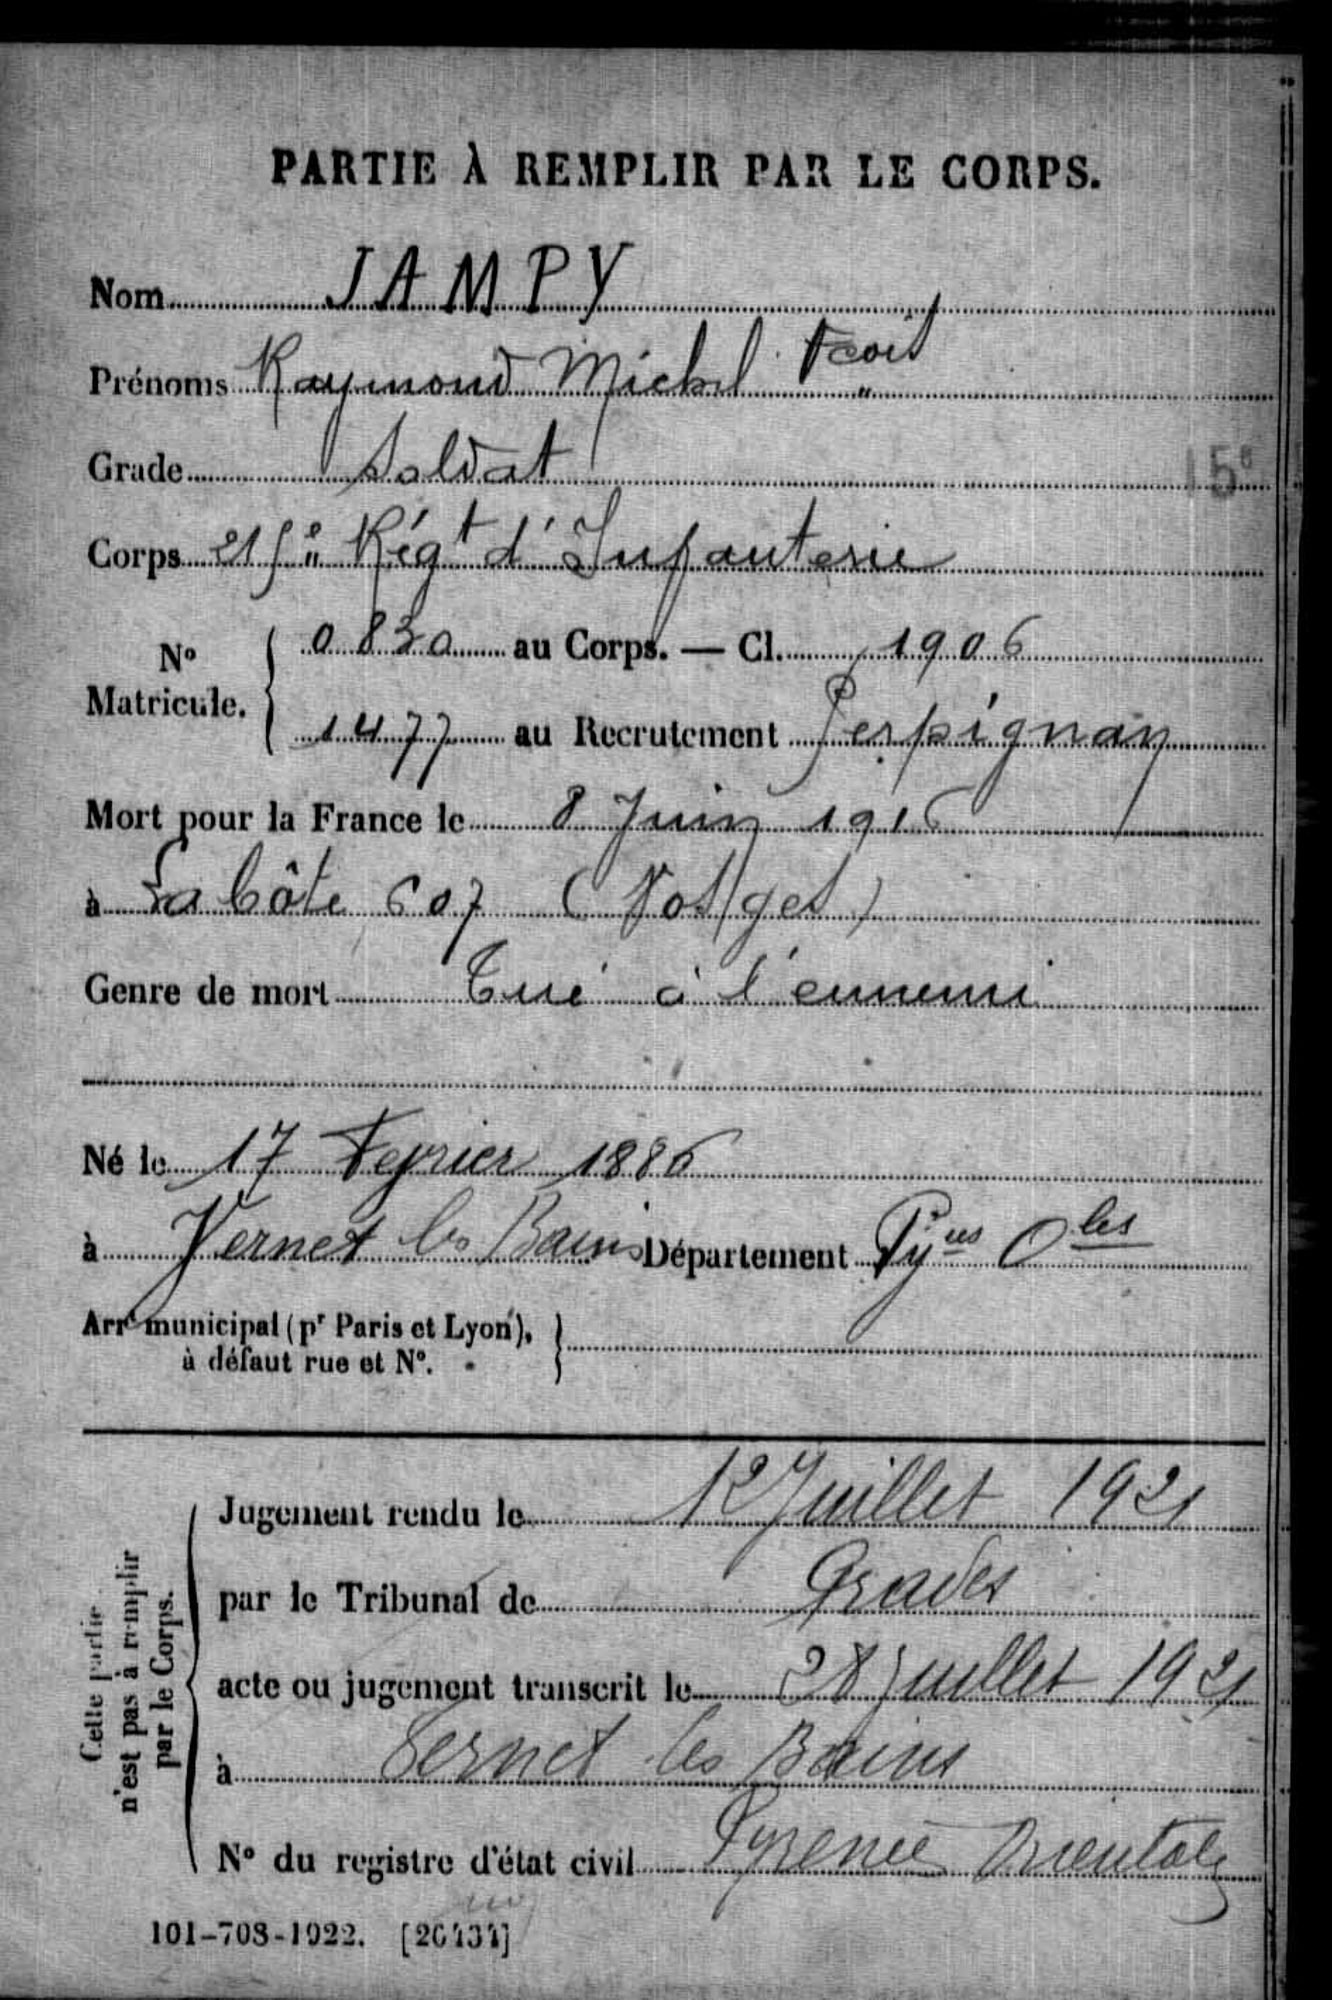 PARTIE À REMPLIR PAR LE CORPS.
Nom JAMPY
Prénoms Raymond Michel Fcois
Grade Soldat
15e
Corps 215e Régt d'Infanterie
No Matricule. 0830 au Corps. — Cl. 1906
1477 au Recrutement Perpignan
Mort pour la France le 8 Juin 1916
à La Côte 607 (Vosges)
Genre de mort Tué à l'ennemi
Né le 17 Fevrier 1886
à Vernet les Bains Département Pyées Oles
Arrt municipal (pr Paris et Lyon),
à défaut rue et No.
Cette partie n'est pas à remplir par le Corps.
Jugement rendu le 12 Juillet 1921
par le Tribunal de Prades
acte ou jugement transcrit le 28 juillet 1921
à Vernet les Bains
No du registre d'état civil Pyrenées Orientales
101-708-1922. [26434]